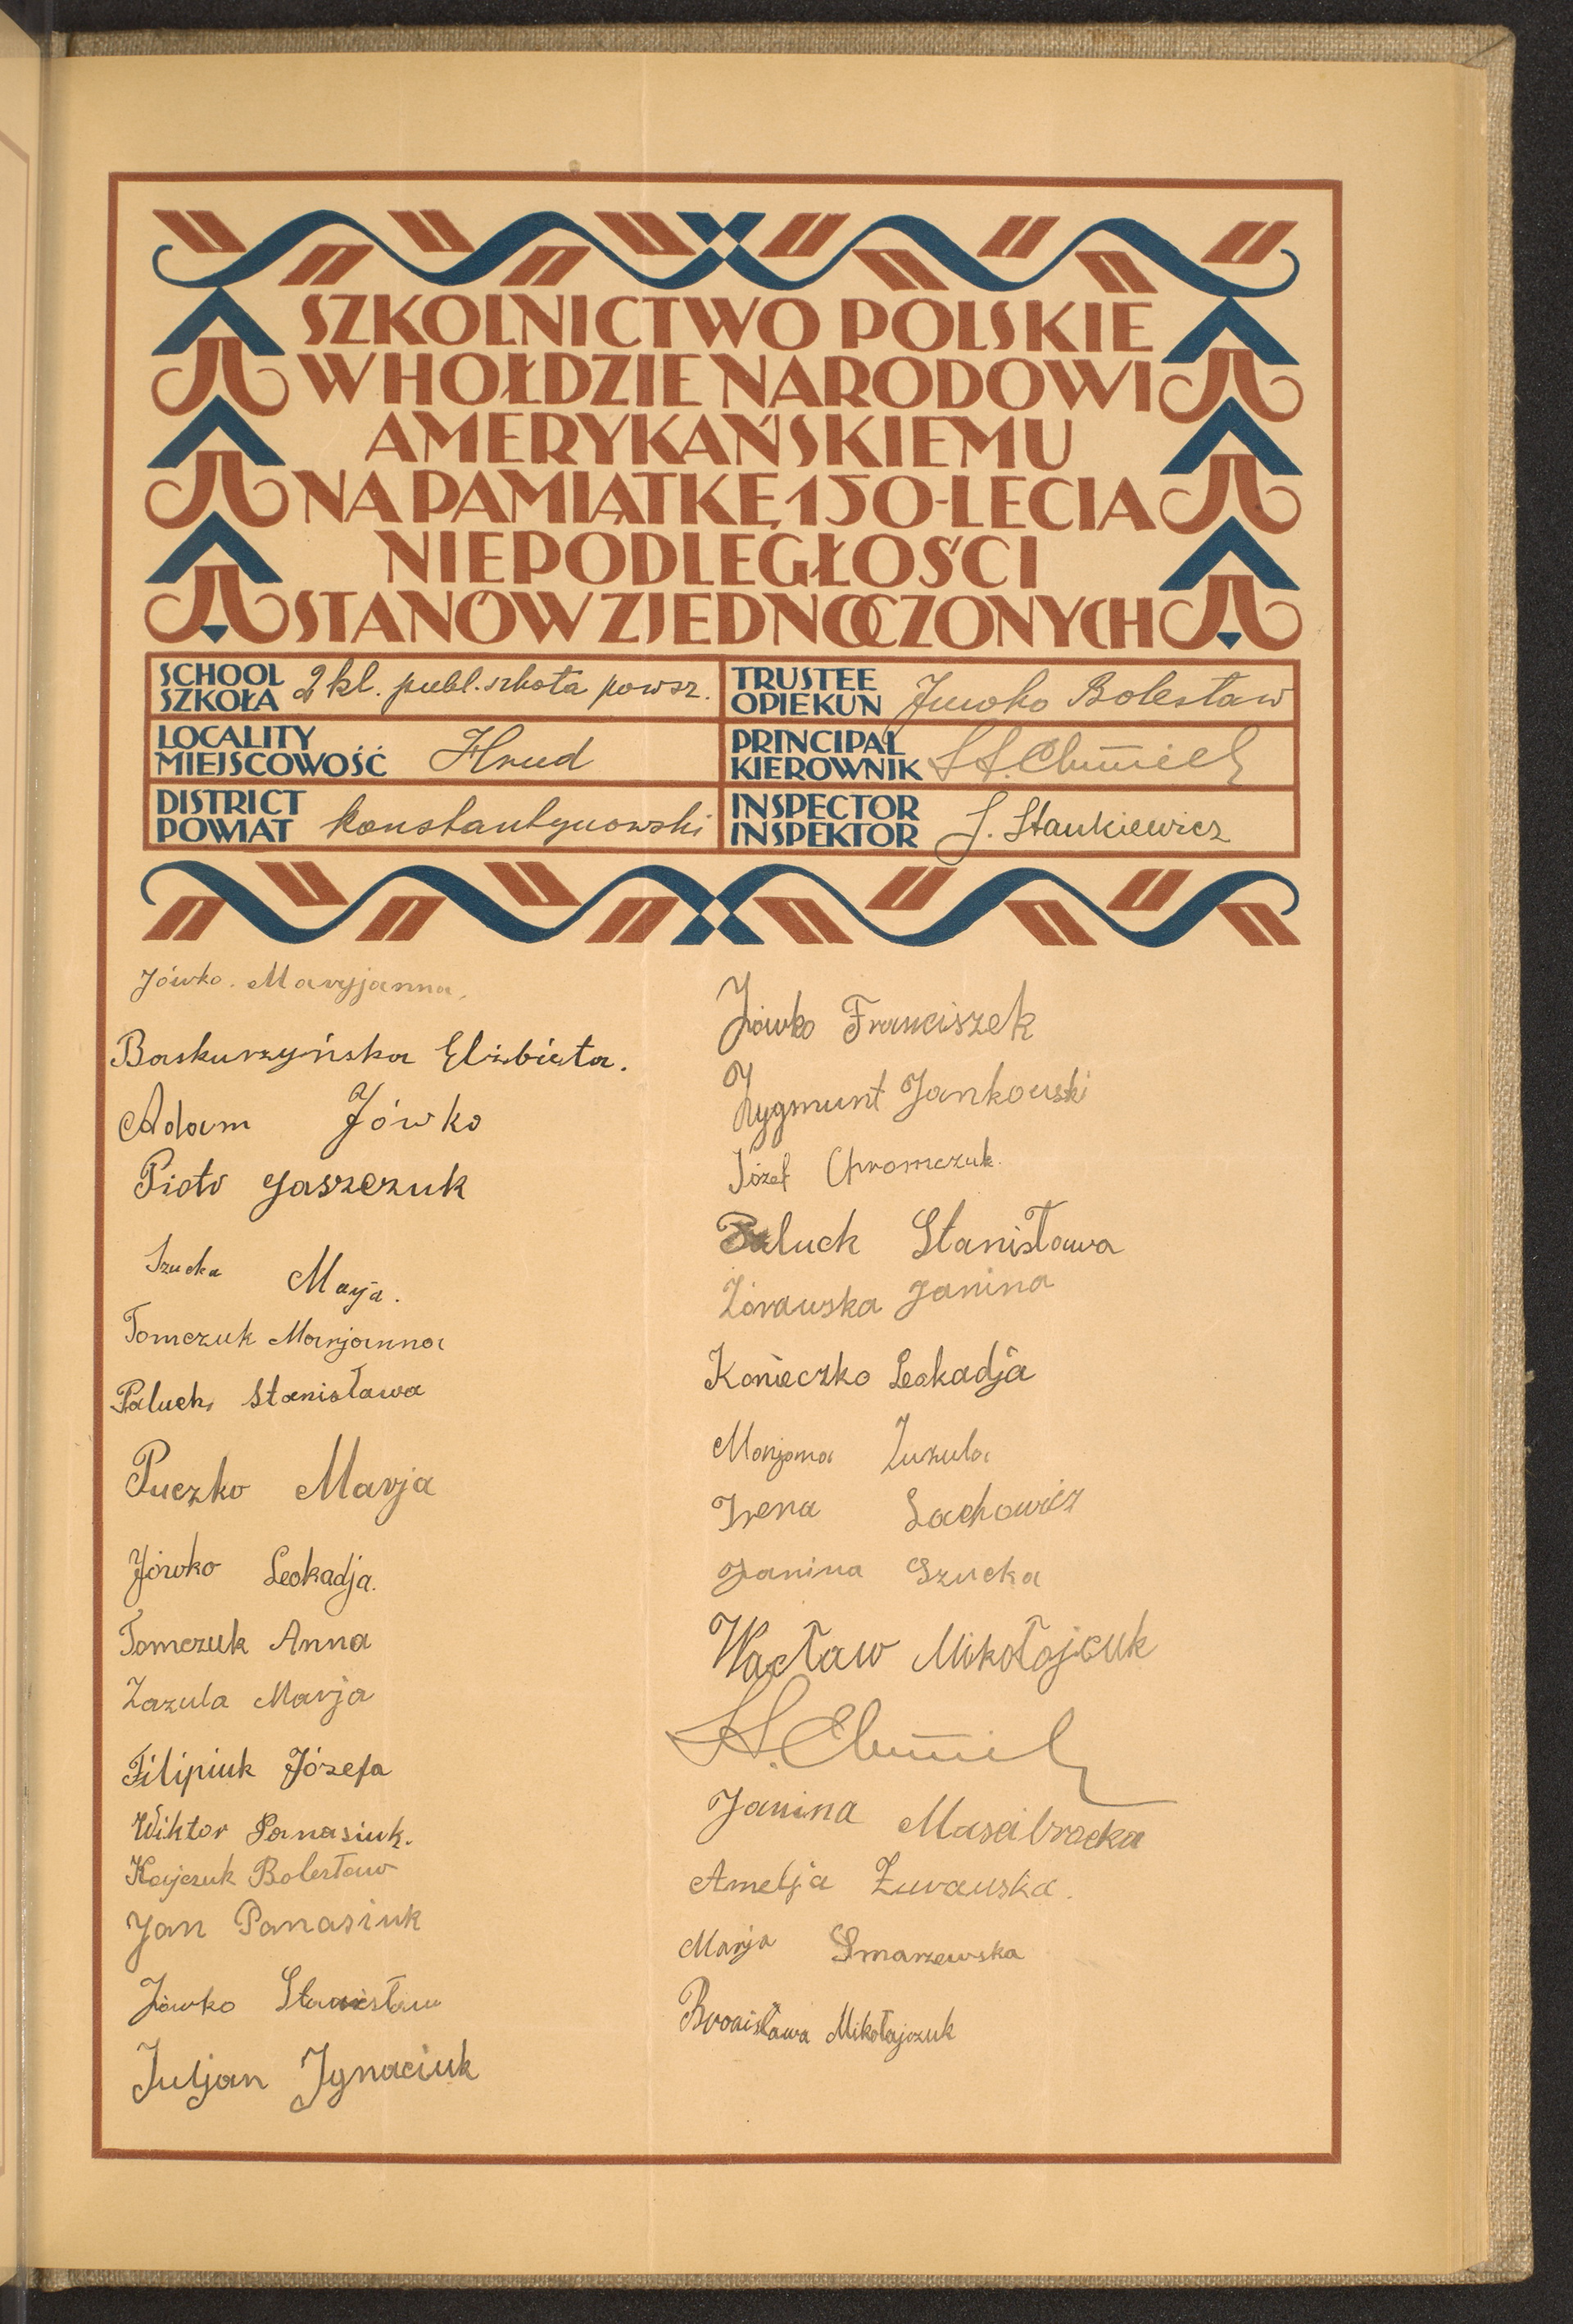 SZKOLNICTWO POLSKIE
W HOŁDZIE NARODOWI
AMERYKAŃSKIEMU
NA PAMIĄTKĘ 150-LECIA
NIEPODLEGŁOŚCI
STANÓW ZJEDNOCZONYCH
SCHOOL
SZKOŁA 2 kl. publ. szkoła powsz.
TRUSTEE
OPIEKUN Juwko Bolesław
LOCALITY
MIEJSCOWOŚĆ Hrud
PRINCIPAL
KIEROWNIK St. Chmiel
DISTRICT
POWIAT konstantynowski
INSPECTOR
INSPEKTOR S. Stankiewicz
Jówko. Maryjanna.
Baskurzyńska Elżbieta.
Adam Jówko
Piotr Jaszczuk
Szucka Marja.
Tomczuk Marjanna
Paluch Stanisława
Puczko Marja
Jówko Leokadja.
Tomczuk Anna
Zazula Marja
Filipiuk Józefa
Wiktor Panasiuk.
Kajczuk Bolesław
Jan Panasiuk
Jówko Stanisław
Juljan Ignaciuk
Jówko Franciszek
Zygmunt Jankowski
Józef Chromczuk.
Paluch Stanisława
Żórawska Janina
Konieczko Leokadja
Marjana Zuzula
Irena Lachowicz
Janina Szucka
Wacław Mikołajcuk
St. Chmiel
Janina
Amelja Żurawska.
Marja Smarzewska
Bronisława Mikołajczuk